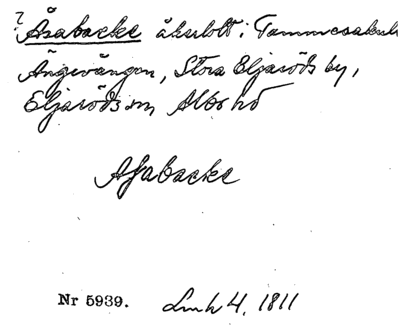 ? Åsabacke åkerlott i Tommesaker
Ängavången, Stora Eljaröds by,
Eljaröds sn Albo hd
Asabacke
Nr 5939. Lmh 4, 1811